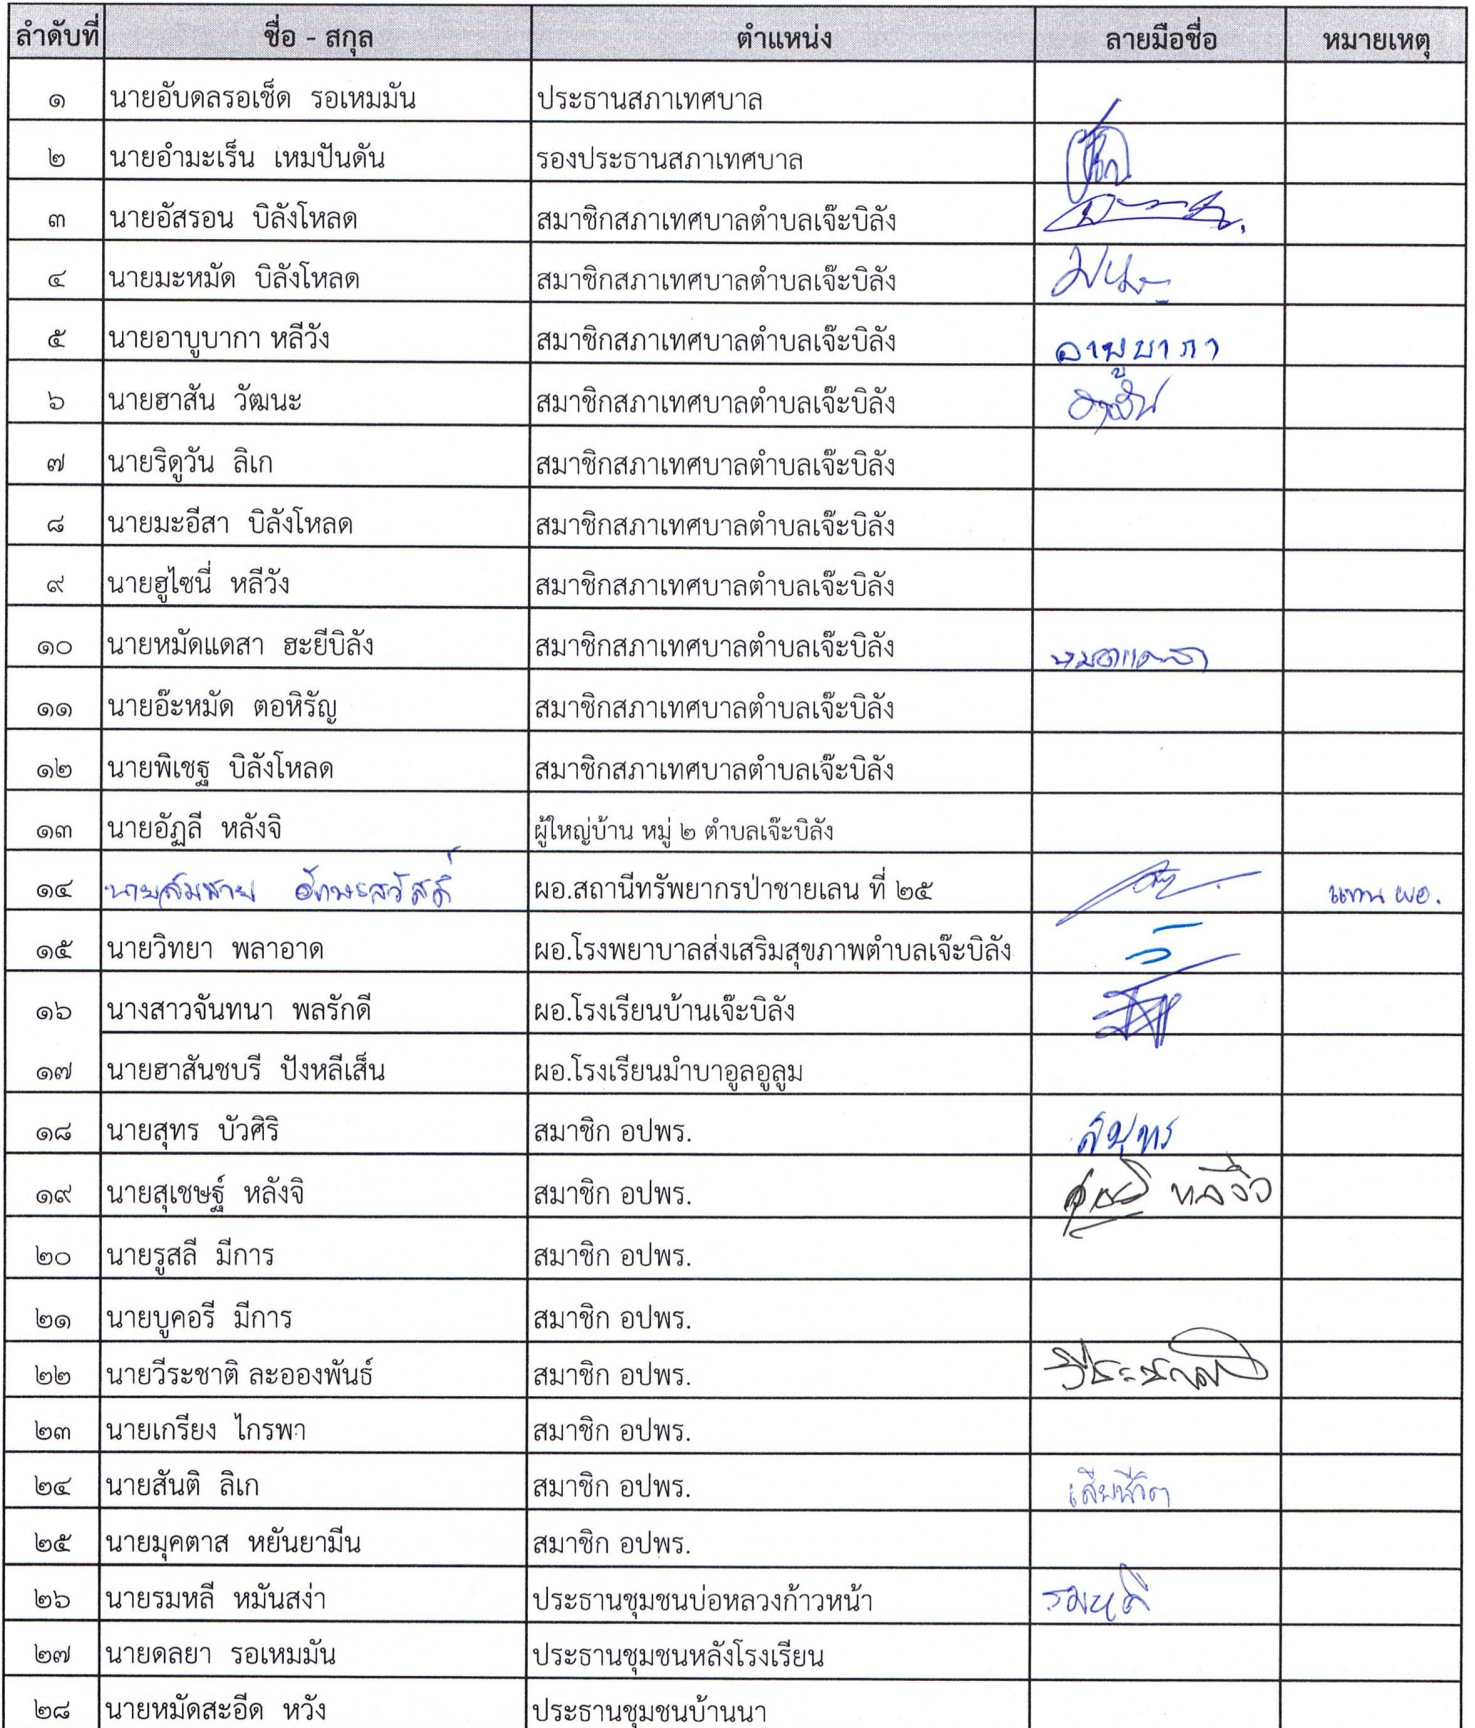 ลำดับที่ ชื่อ - สกุล ตำแหน่ง ลายมือชื่อ หมายเหตุ
๑ นายอับดลรอเช็ด รอเหมมัน ประธานสภาเทศบาล
๒ นายอำมะเร็น เหมปันดัน รองประธานสภาเทศบาล
๓ นายอัสรอน บิลังโหลด สมาชิกสภาเทศบาลตำบลเจ๊ะบิลัง
๔ นายมะหมัด บิลังโหลด สมาชิกสภาเทศบาลตำบลเจ๊ะบิลัง
๕ นายอาบูบากา หลีวัง สมาชิกสภาเทศบาลตำบลเจ๊ะบิลัง อาบูบากา
๖ นายฮาสัน วัฒนะ สมาชิกสภาเทศบาลตำบลเจ๊ะบิลัง ฮาสัน
๗ นายริดูวัน ลิเก สมาชิกสภาเทศบาลตำบลเจ๊ะบิลัง
๘ นายมะอีสา บิลังโหลด สมาชิกสภาเทศบาลตำบลเจ๊ะบิลัง
๙ นายฮูไซนี่ หลีวัง สมาชิกสภาเทศบาลตำบลเจ๊ะบิลัง
๑๐ นายหมัดแดสา ฮะยีบิลัง สมาชิกสภาเทศบาลตำบลเจ๊ะบิลัง หมัดแดสา
๑๑ นายอ๊ะหมัด ตอหิรัญ สมาชิกสภาเทศบาลตำบลเจ๊ะบิลัง
๑๒ นายพิเชฐ บิลังโหลด สมาชิกสภาเทศบาลตำบลเจ๊ะบิลัง
๑๓ นายอัฏลี หลังจิ ผู้ใหญ่บ้าน หมู่ ๒ ตำบลเจ๊ะบิลัง
๑๔ นายสมสาย ผอ.สถานีทรัพยากรป่าชายเลน ที่ ๒๕ แทน ผอ.
๑๕ นายวิทยา พลาอาด ผอ.โรงพยาบาลส่งเสริมสุขภาพตำบลเจ๊ะบิลัง
๑๖ นางสาวจันทนา พลรักดี ผอ.โรงเรียนบ้านเจ๊ะบิลัง
๑๗ นายฮาสันชบรี ปังหลีเส็น ผอ.โรงเรียนมำบาอูลอูลูม
๑๘ นายสุทร บัวศิริ สมาชิก อปพร.
๑๙ นายสุเชษฐ์ หลังจิ สมาชิก อปพร.
๒๐ นายรูสลี มีการ สมาชิก อปพร.
๒๑ นายบูคอรี มีการ สมาชิก อปพร.
๒๒ นายวีระชาติ ละอองพันธ์ สมาชิก อปพร. วีระชาติ
๒๓ นายเกรียง ไกรพา สมาชิก อปพร.
๒๔ นายสันติ ลิเก สมาชิก อปพร. เสียชีวิต
๒๕ นายมุคตาส หยันยามีน สมาชิก อปพร.
๒๖ นายรมหลี หมันสง่า ประธานชุมชนบ่อหลวงก้าวหน้า รมหลี
๒๗ นายดลยา รอเหมมัน ประธานชุมชนหลังโรงเรียน
๒๘ นายหมัดสะอีด หวัง ประธานชุมชนบ้านนา